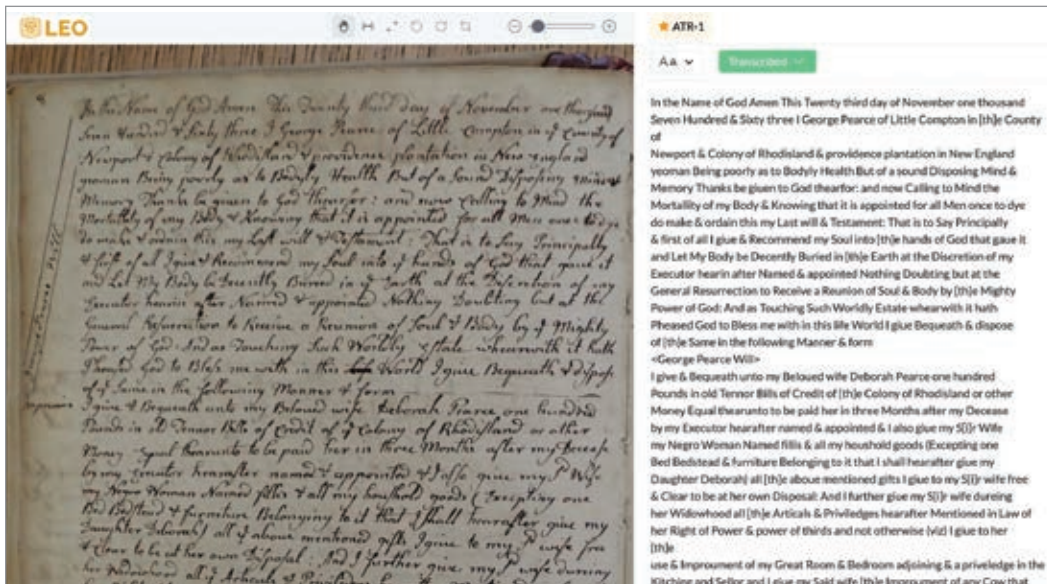 LEO
In the Name of God Amen This Twenty third day of November one thousand
Seven Hundred & Sixty three I George Pearce of Little Compton in ye County of
Newport & Colony of Rhodisland & providence plantation in New England
yeoman Being poorly as to Bodyly Health But of a Sound Disposing Mind &
Memory Thanks be giuen to God thearfor: and now Calling to Mind the
Mortallity of my Body & Knowing that it is appointed for all Men once to dye
do make & ordain this my Last will & Testament: That is to Say Principally
& first of all I giue & Recommend my Soul into ye hands of God that gaue it
and Let My Body be Decently Buried in ye Earth at the Discretion of my
Executor hearin after Named & appointed Nothing Doubting but at the
General Resurrection to Receive a Reunion of Soul & Body by ye Mighty
Power of God: And as Touching Such Worldly Estate whearwith it hath
Pleased God to Bless me with in this World I giue Bequeath & dispose
of ye Same in the following Manner & form
George Pearce Will
I giue & Bequeath unto my Beloued wife Deborah Pearce one hundred
Pounds in old Tennor Bills of Credit of ye Colony of Rhodisland or other
Money Equal thearunto to be paid her in three Months after my Decease
by my Executor hearafter named & appointed & I also giue my Sd Wife
my Negro Woman Named fillis & all my houshold goods (Excepting one
Bed Bedstead & furniture Belonging to it that I shall hearafter giue my
Daughter Deborah) all ye aboue mentioned gifts I giue to my Sd wife free
& Clear to be at her own Disposal: And I further giue my Sd wife dureing
her Widowhood all ye Articals & Priviledges
ATR-1
Aa
Transcribed
In the Name of God Amen This Twenty third day of November one thousand
Seven Hundred & Sixty three I George Pearce of Little Compton in [th]e County
of
Newport & Colony of Rhodisland & providence plantation in New England
yeoman Being poorly as to Bodyly Health But of a sound Disposing Mind &
Memory Thanks be giuen to God thearfor: and now Calling to Mind the
Mortallity of my Body & Knowing that it is appointed for all Men once to dye
do make & ordain this my Last will & Testament: That is to Say Principally
& first of all I giue & Recommend my Soul into [th]e hands of God that gaue it
and Let My Body be Decently Buried in [th]e Earth at the Discretion of my
Executor hearin after Named & appointed Nothing Doubting but at the
General Resurrection to Receive a Reunion of Soul & Body by [th]e Mighty
Power of God: And as Touching Such Worldly Estate whearwith it hath
Pheased God to Bless me with in this life World I giue Bequeath & dispose
of [th]e Same in the following Manner & form
<George Pearce Will>
I give & Bequeath unto my Beloued wife Deborah Pearce one hundred
Pounds in old Tennor Bills of Credit of [th]e Colony of Rhodisland or other
Money Equal thearunto to be paid her in three Months after my Decease
by my Executor hearafter named & appointed & I also giue my S[i]r Wife
my Negro Woman Named fillis & all my houshold goods (Excepting one
Bed Bedstead & furniture Belonging to it that I shall hearafter giue my
Daughter Deborah) all [th]e aboue mentioned gifts I giue to my S[i]r wife free
& Clear to be at her own Disposal: And I further giue my S[i]r wife dureing
her Widowhood all [th]e Articals & Priviledges hearafter Mentioned in Law of
her Right of Power & power of thirds and not otherwise (viz) I giue to her
[th]e
use & Improument of my Great Room & Bedroom adjoining & a priveledge in the
Kitching and Sellor and I giue my Said wife [th]e Improument of any Cow that